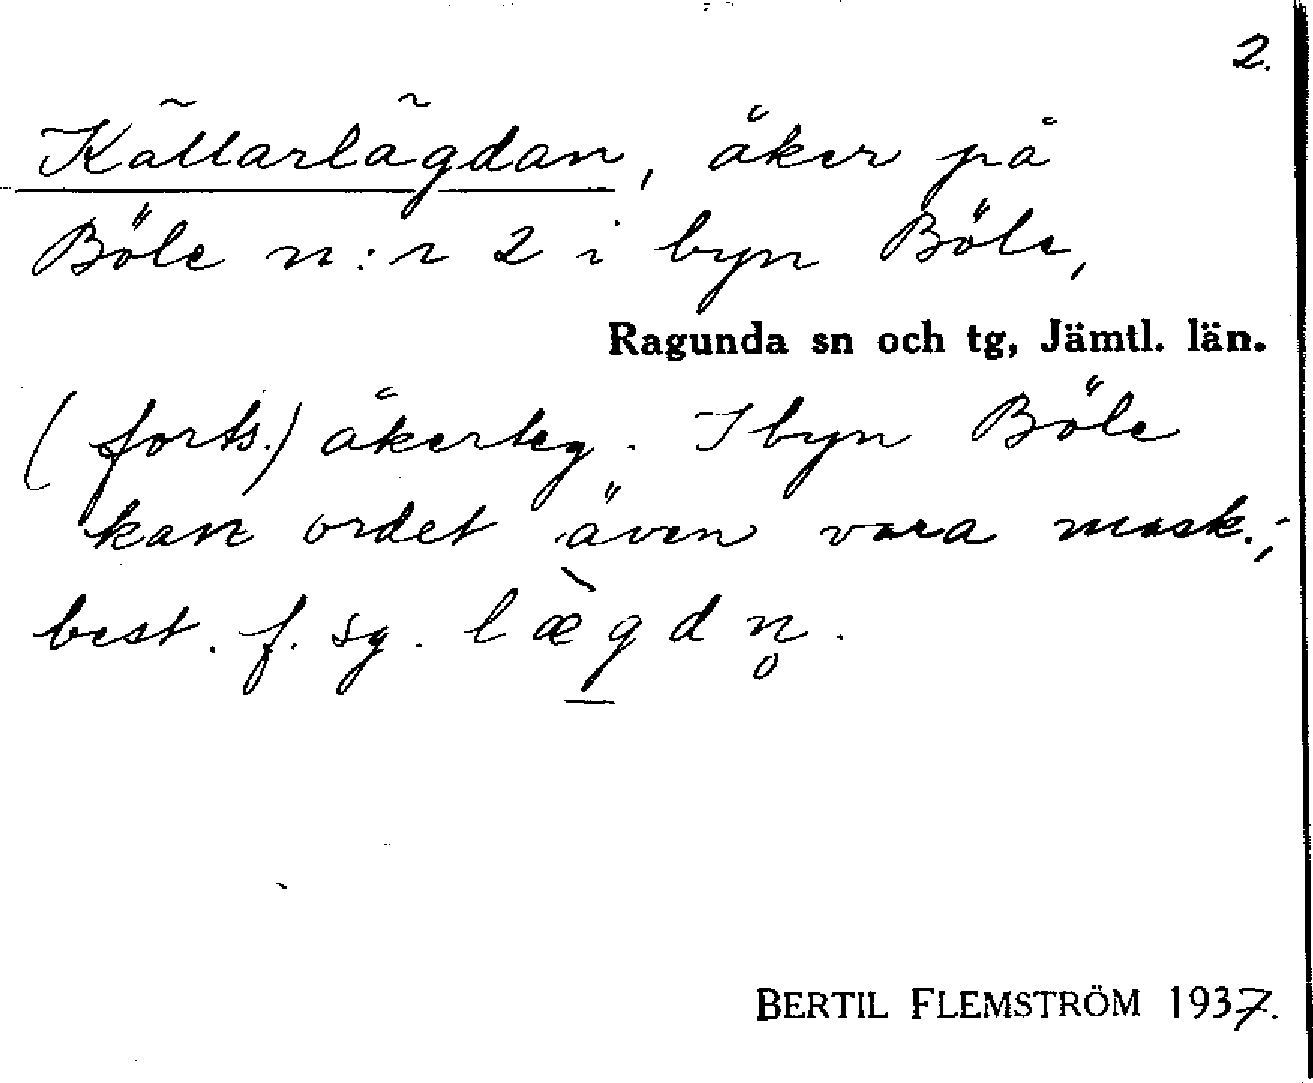 2.
Källarlägdan, åker på
Böle n:r 2 i byn Böle,
Ragunda sn och tg, Jämtl. län.
(forts.) åkerteg. I byn Böle
kan ordet även vara mask.;
best. f. sg. læ̀gdn̥.
BERTIL FLEMSTRÖM 1937.